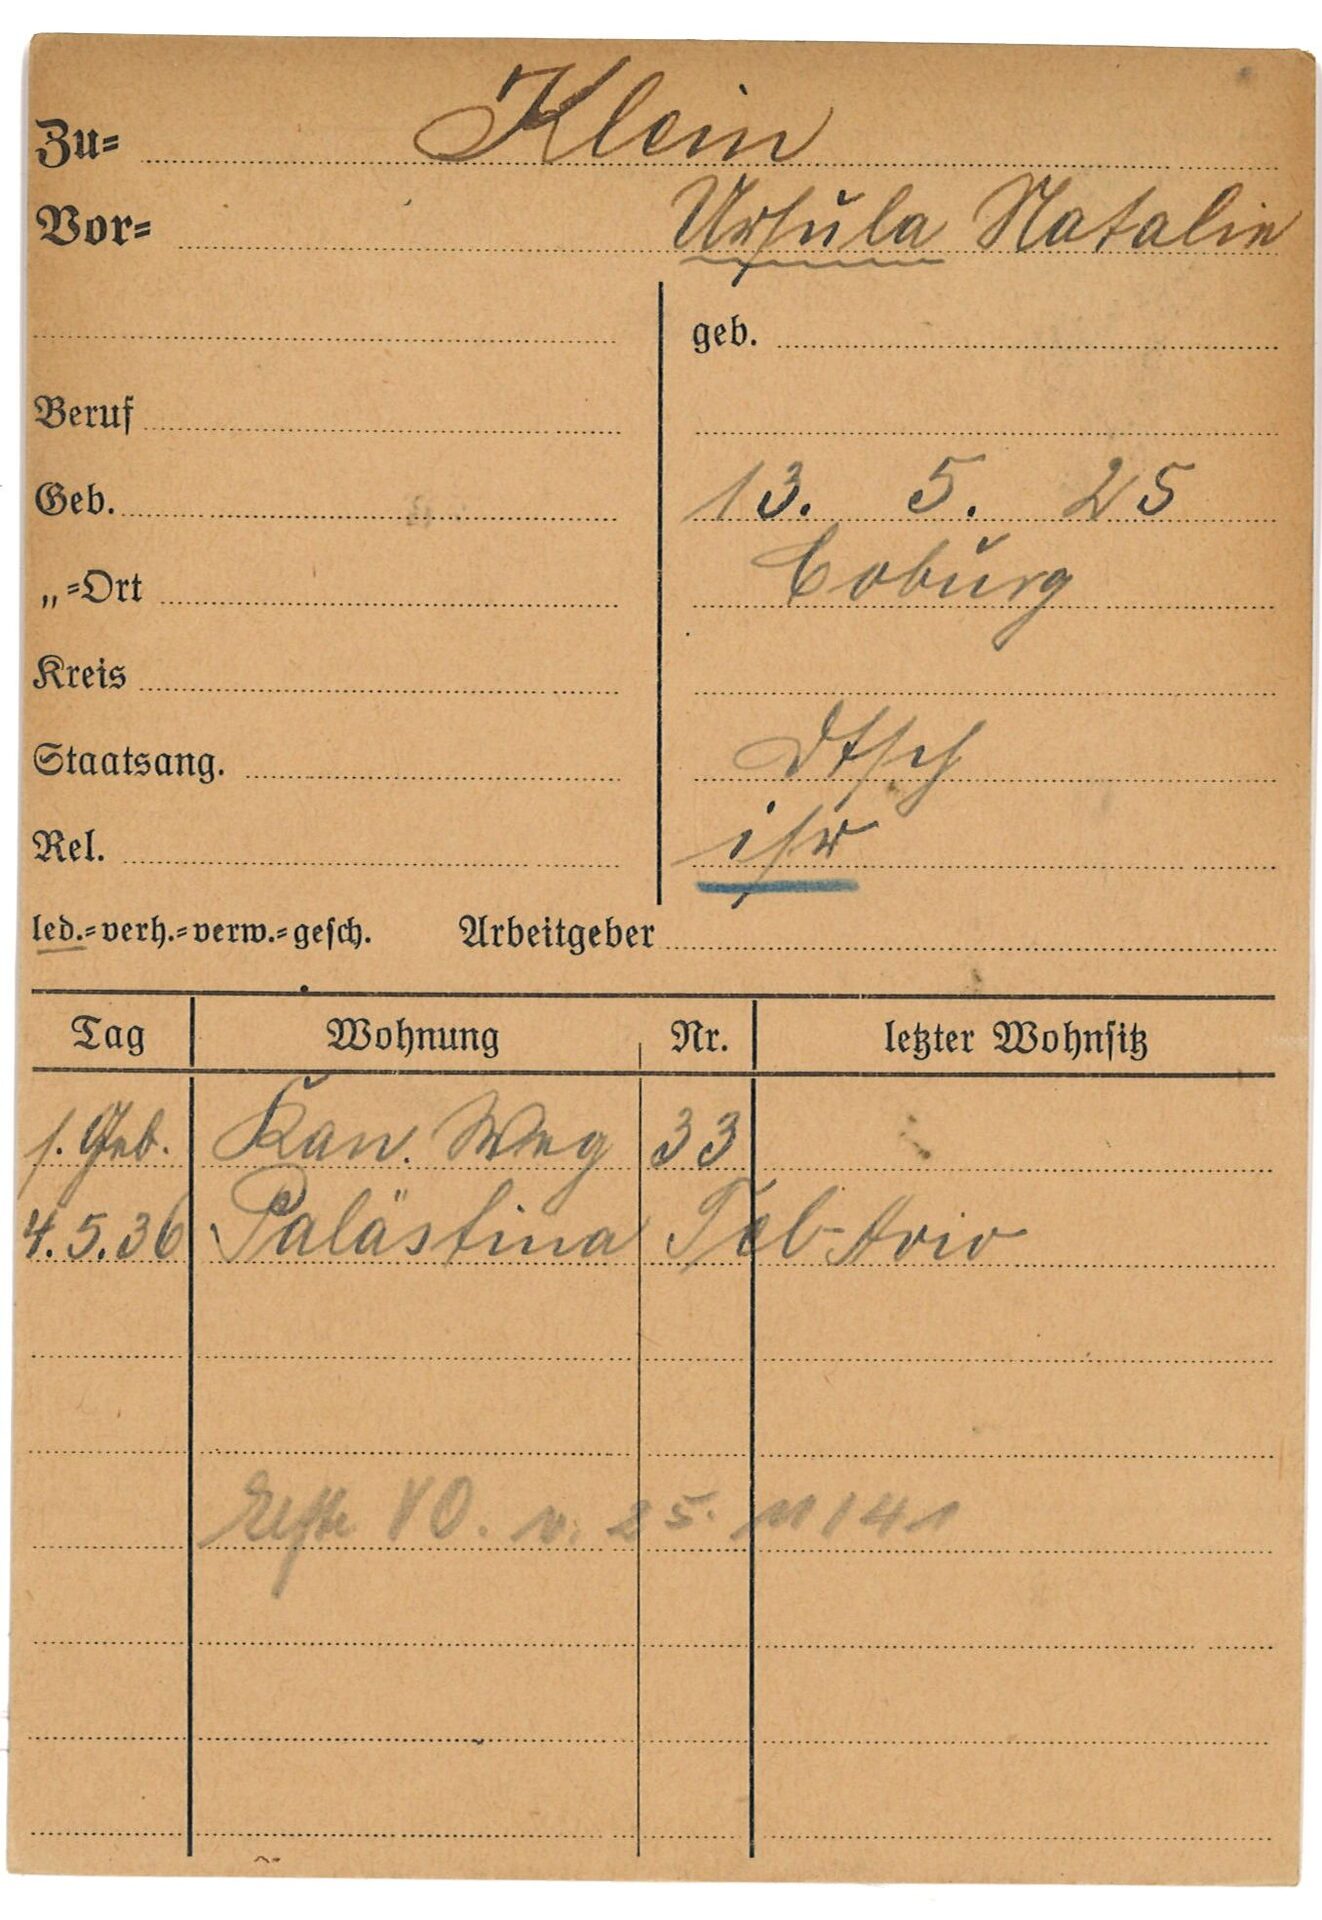 Zu= Klein
Vor= Ursula Natalie
geb.
Beruf
Geb. 13. 5. 25
„=Ort Coburg
Kreis
Staatsang. Dtsch
Rel. isr
led.=verh.=verw.=gesch. Arbeitgeber
Tag Wohnung Nr. letzter Wohnsitz
1. Geb. Kan. Weg 33
4.5.36 Palästina Tel-Aviv
VO. v. 25. 11 / 41